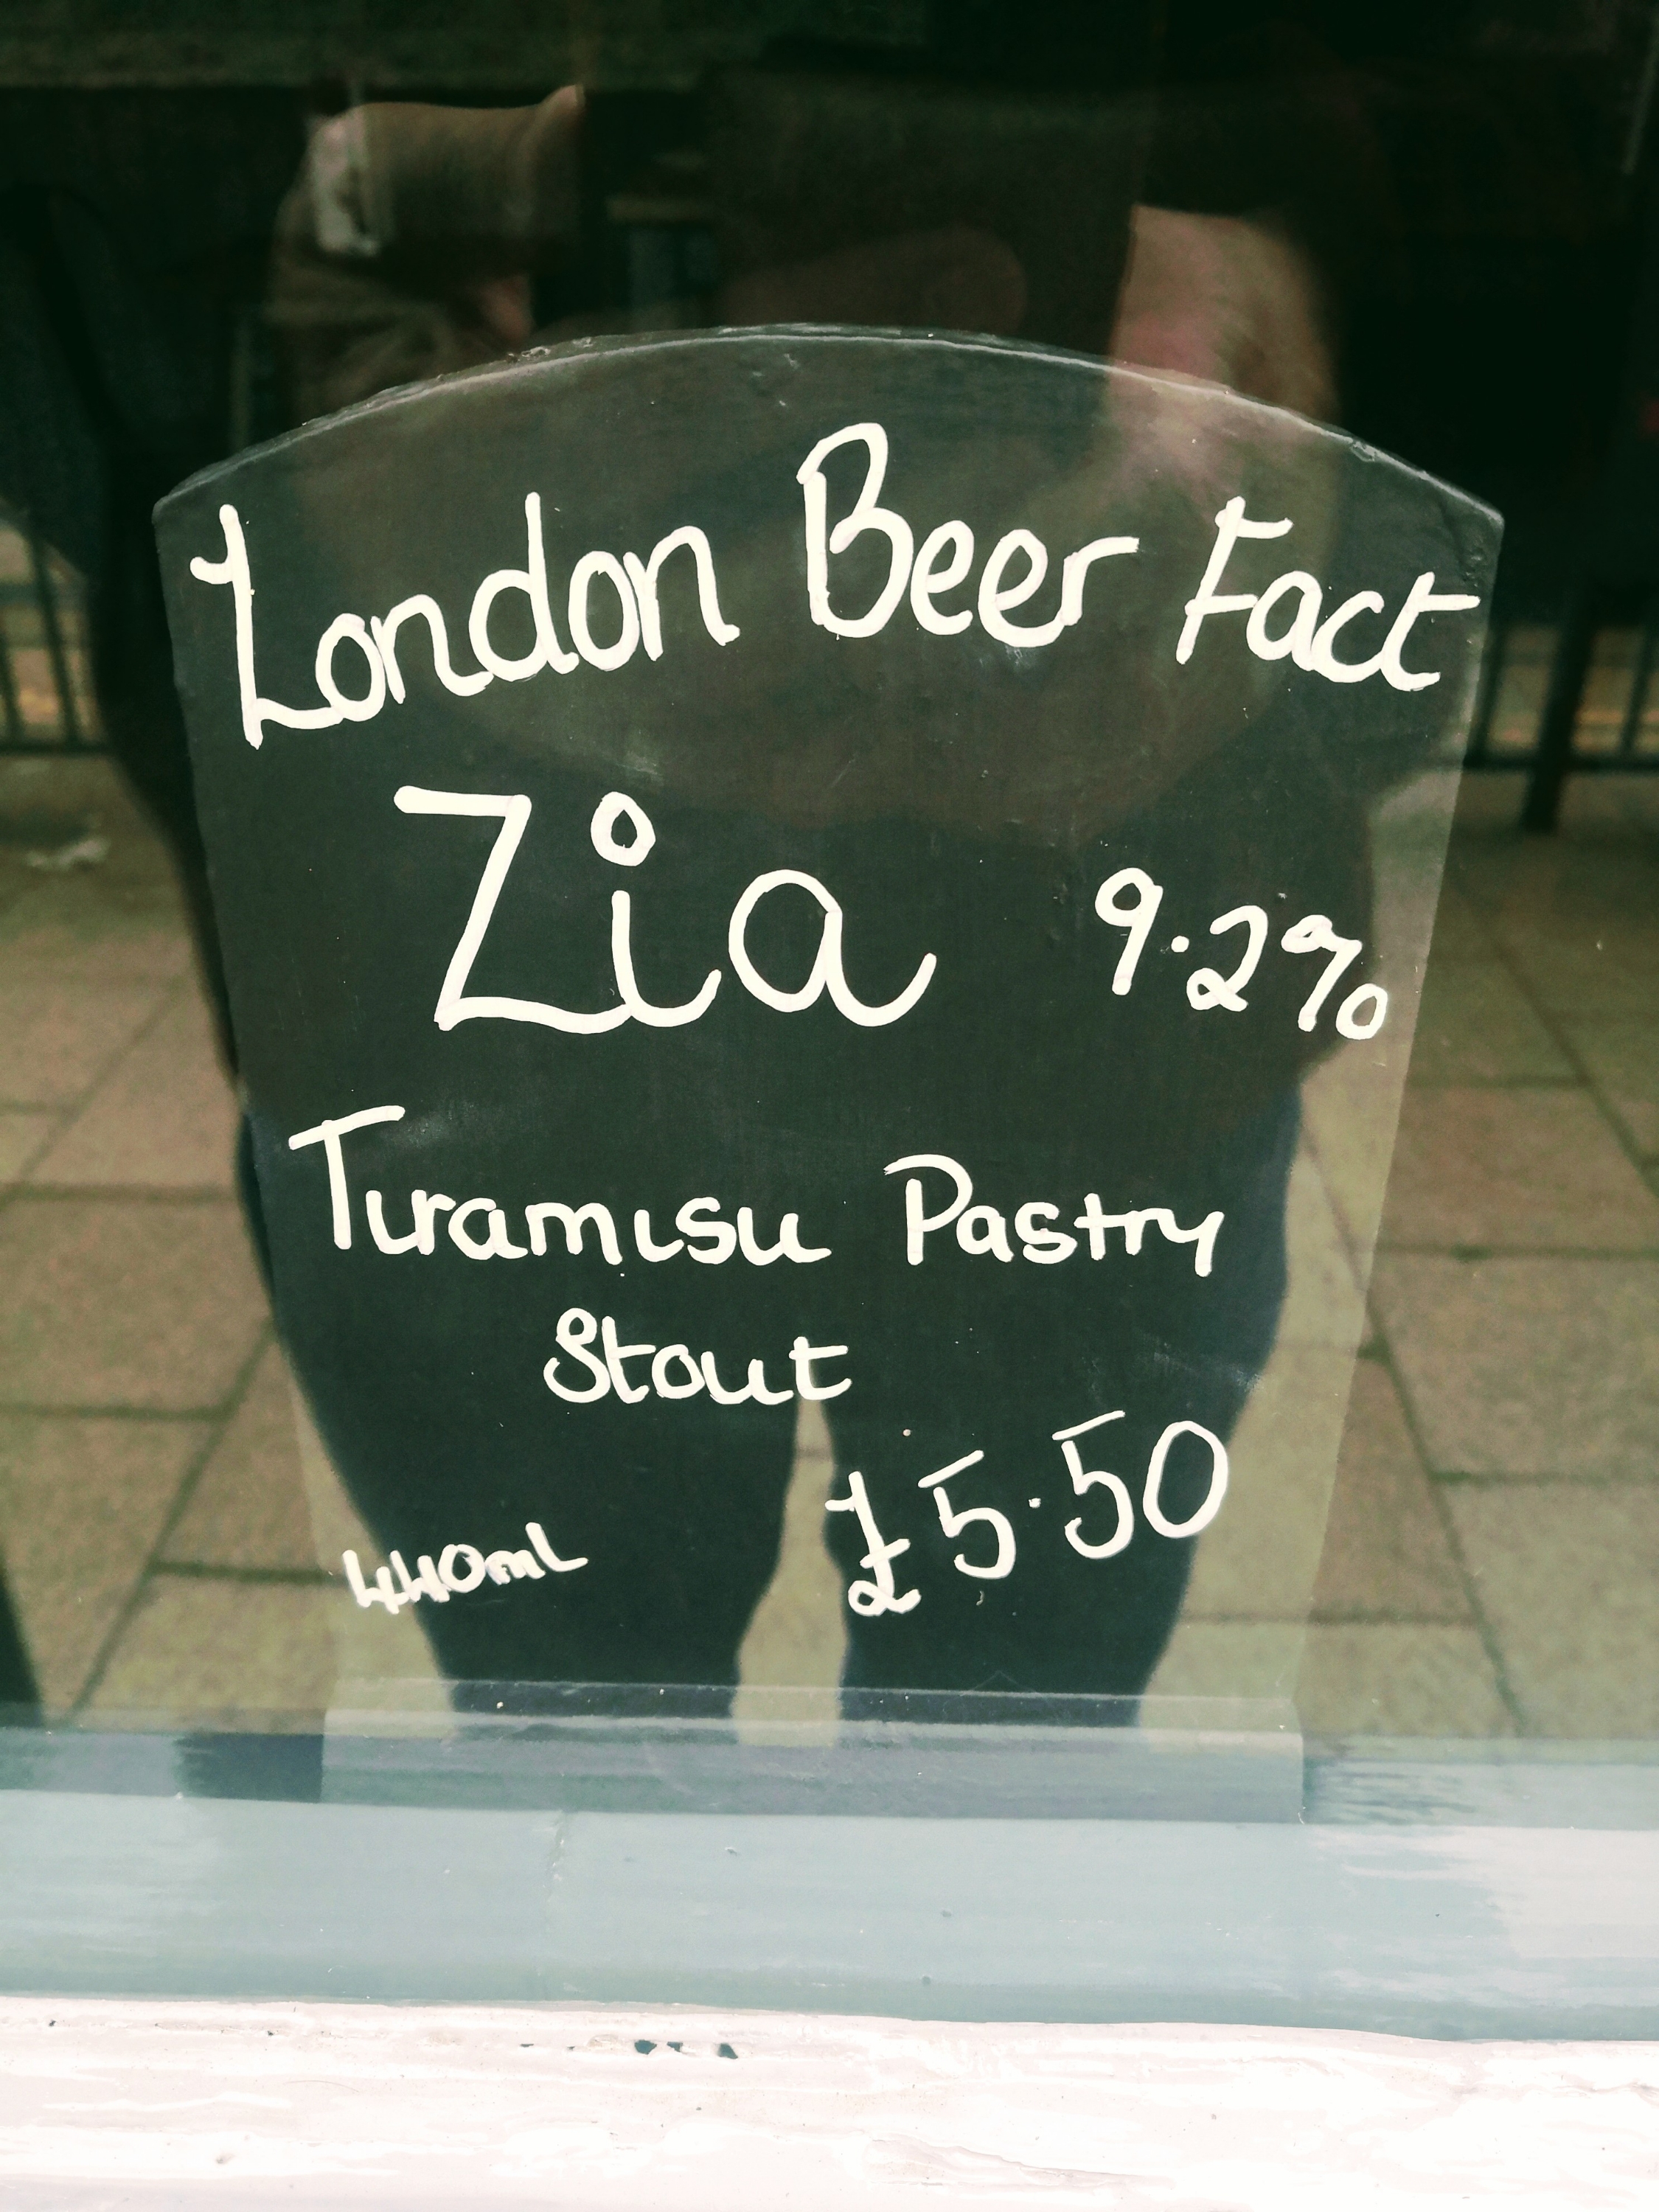 London Beer Fact
Zia 9.2%
Tiramisu Pastry
Stout
440ml £5.50